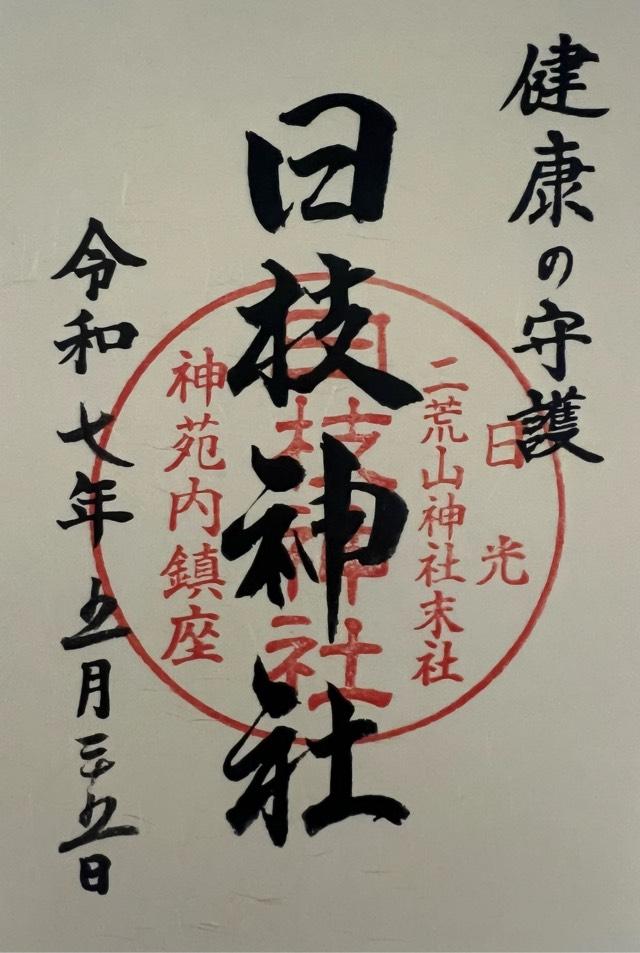 健康の守護
日光
二荒山神社末社
日枝神社
日枝神社
神苑内鎮座
令和七年五月二十五日